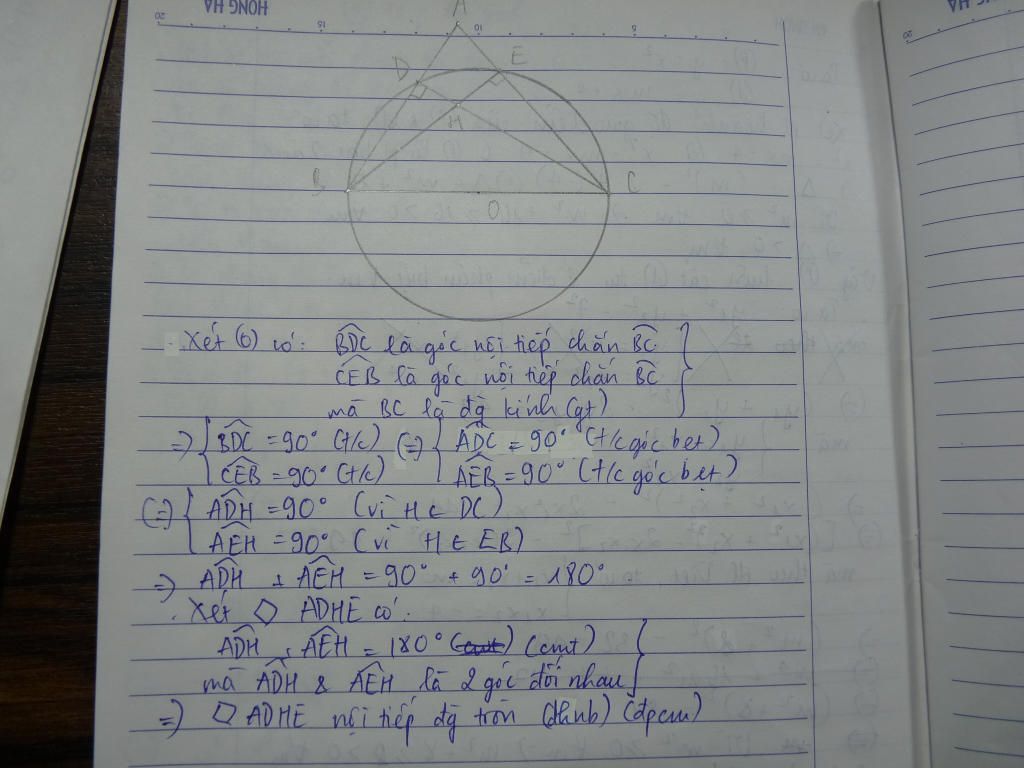 HỒNG HÀ
20
15
10
5
20
A
D
E
H
B
C
O
Xét (O) có: BDC là góc nội tiếp chắn BC
CEB là góc nội tiếp chắn BC
mà BC là đg kính (gt)
=> { BDC = 90° (t/c) (=) { ADC = 90° (t/c góc bẹt)
CEB = 90° (t/c) AEB = 90° (t/c góc bẹt)
(=) { ADH = 90° (vì H ∈ DC)
AEH = 90° (vì H ∈ EB)
=> ADH + AEH = 90° + 90° = 180°
. Xét ◇ ADHE có:
ADH + AEH = 180° (cmt)
mà ADH & AEH là 2 góc đối nhau
=> ◇ ADHE nội tiếp đg tròn (dhnb) (đpcm)